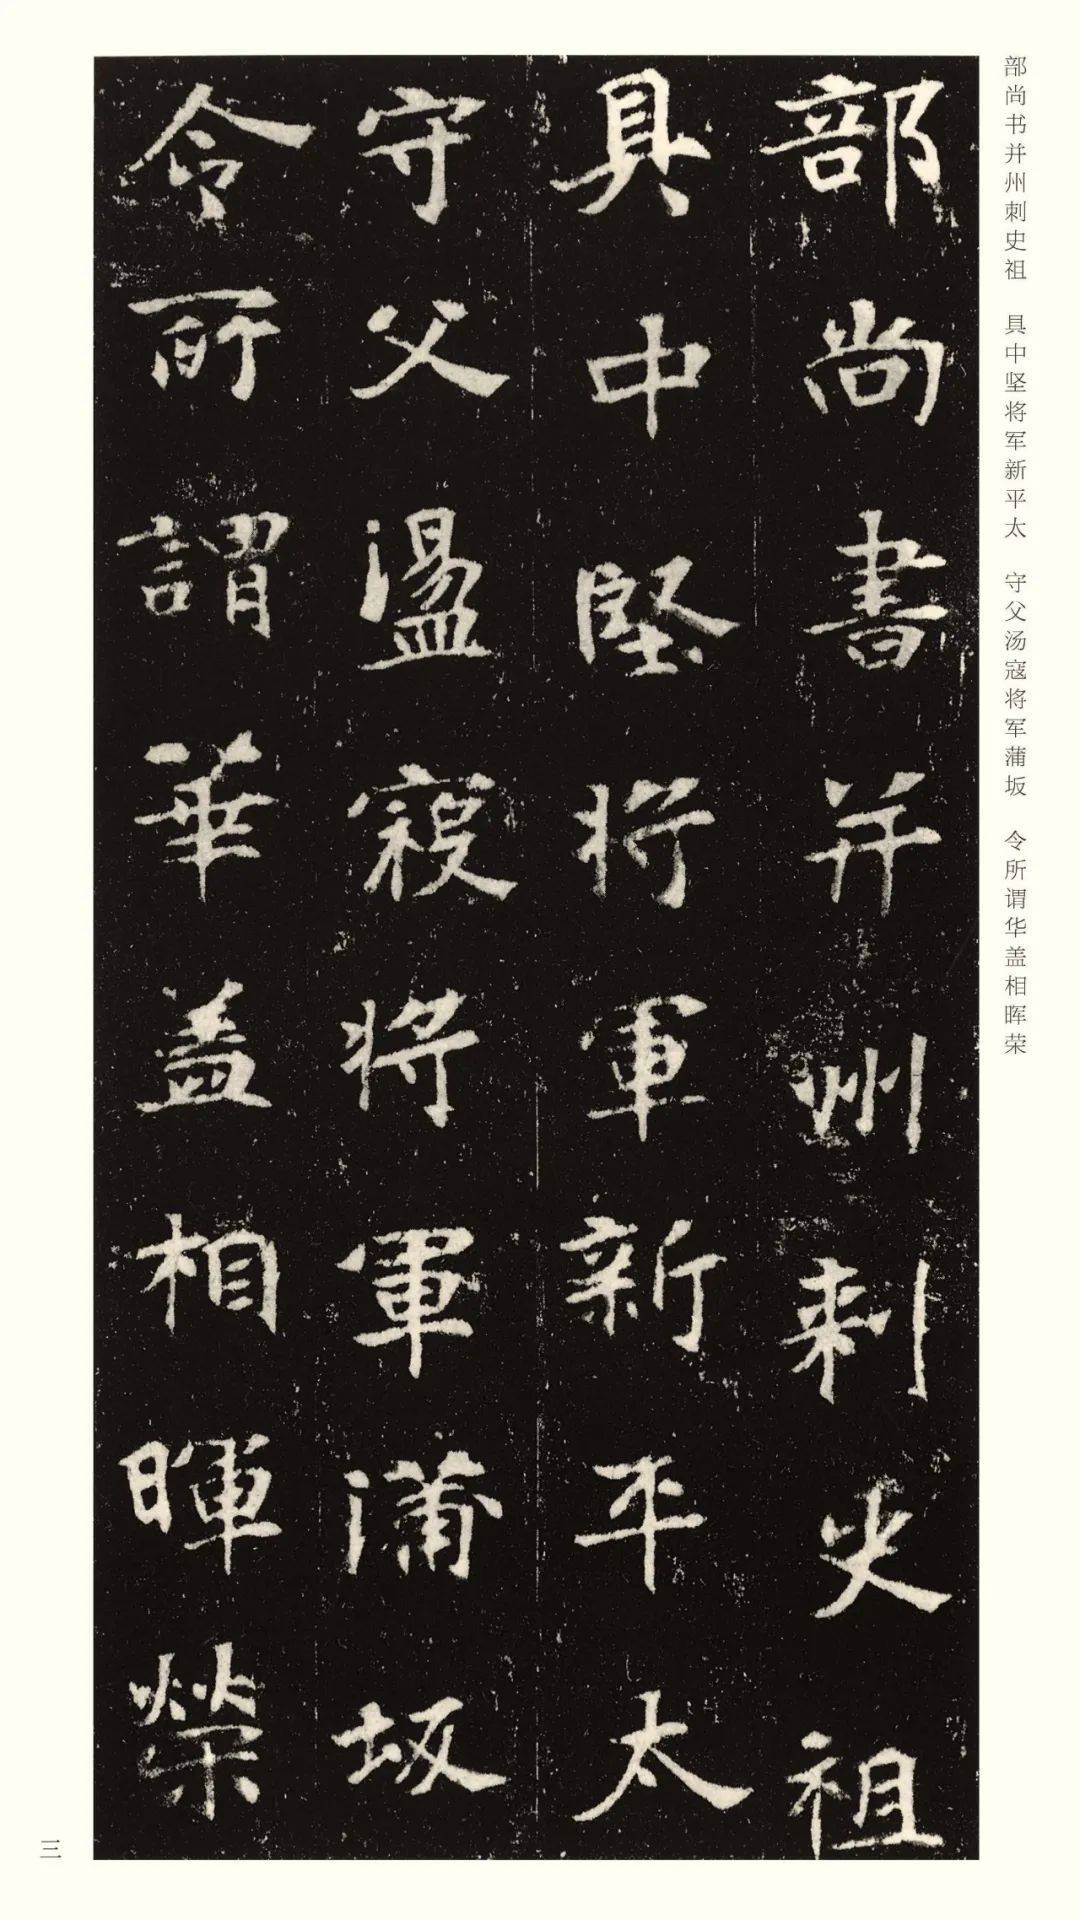 部尚書并州刺史祖
具中堅將軍新平太
守父盪寇將軍蒲坂
令所謂華蓋相暉榮
部尚书并州刺史祖　具中坚将军新平太　守父汤寇将军蒲坂　令所谓华盖相晖荣
三